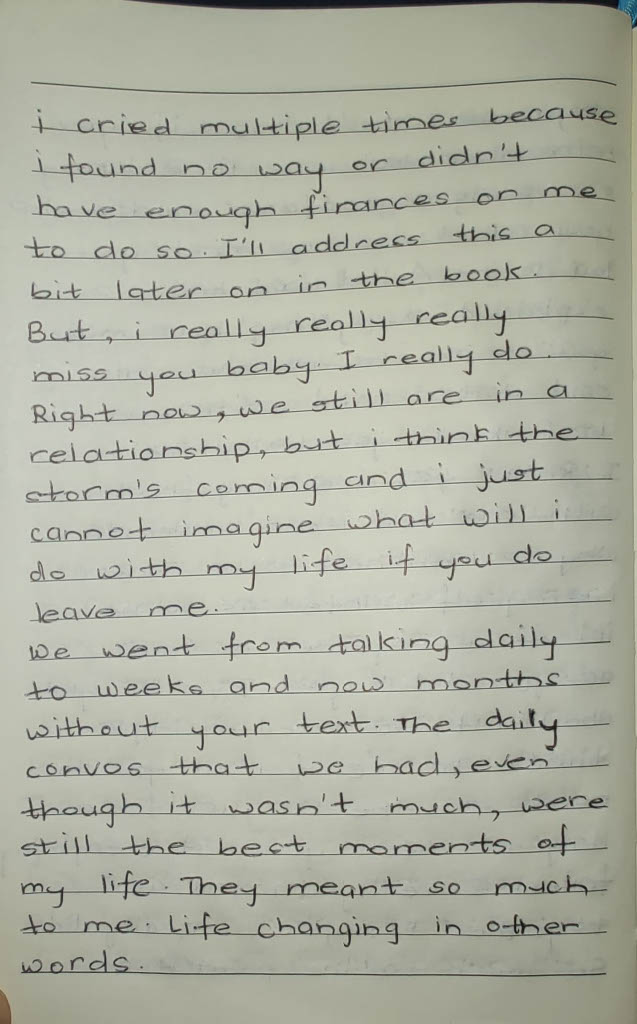 i cried multiple times because
i found no way or didn't
have enough finances on me
to do so. I'll address this a
bit later on in the book.
But, i really really really
miss you baby. I really do.
Right now, we still are in a
relationship, but i think the
storm's coming and i just
cannot imagine what will i
do with my life if you do
leave me.
We went from talking daily
to weeks and now months
without your text. The daily
convos that we had, even
though it wasn't much, were
still the best moments of
my life. They meant so much
to me. Life changing in other
words.